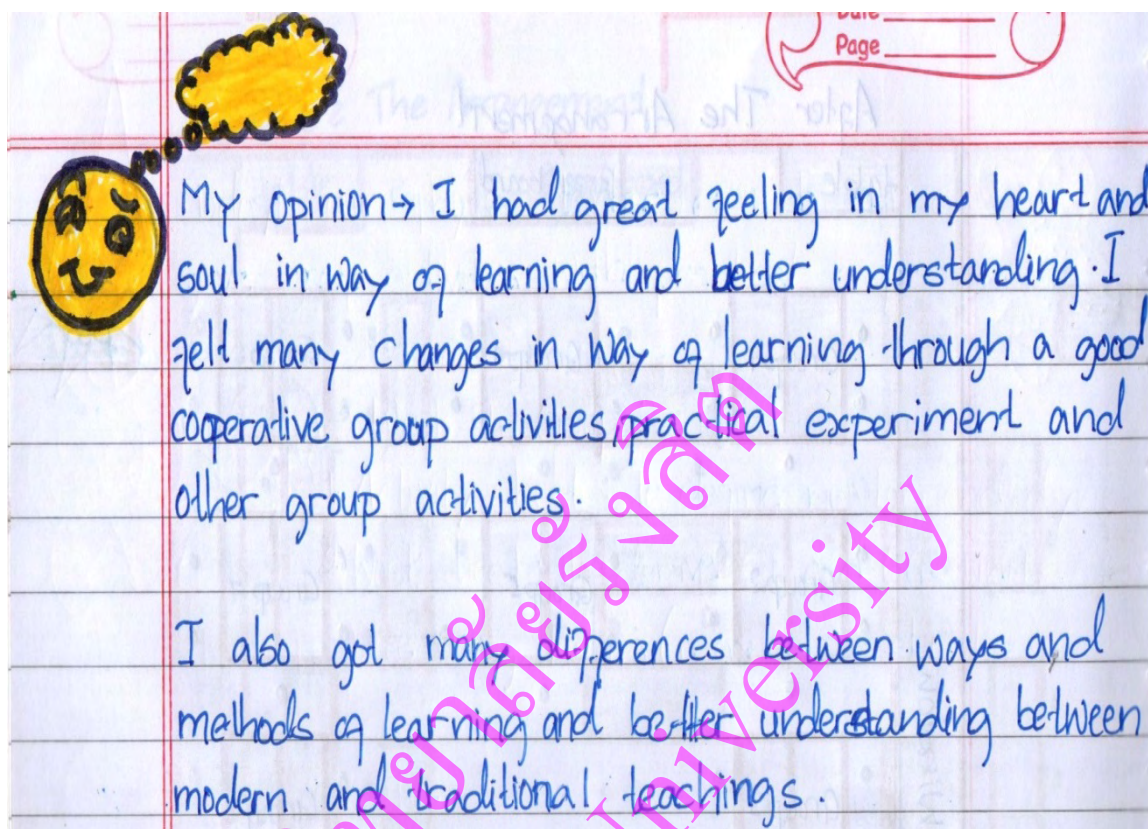 Date
Page
After The Arrangement
My opinion→ I had great feeling in my heart and
soul in way of learning and better understanding. I
felt many changes in way of learning through a good
cooperative group activities, practical experiment and
other group activities.
I also got many differences between ways and
methods of learning and better understanding between
modern and traditional teachings.
University